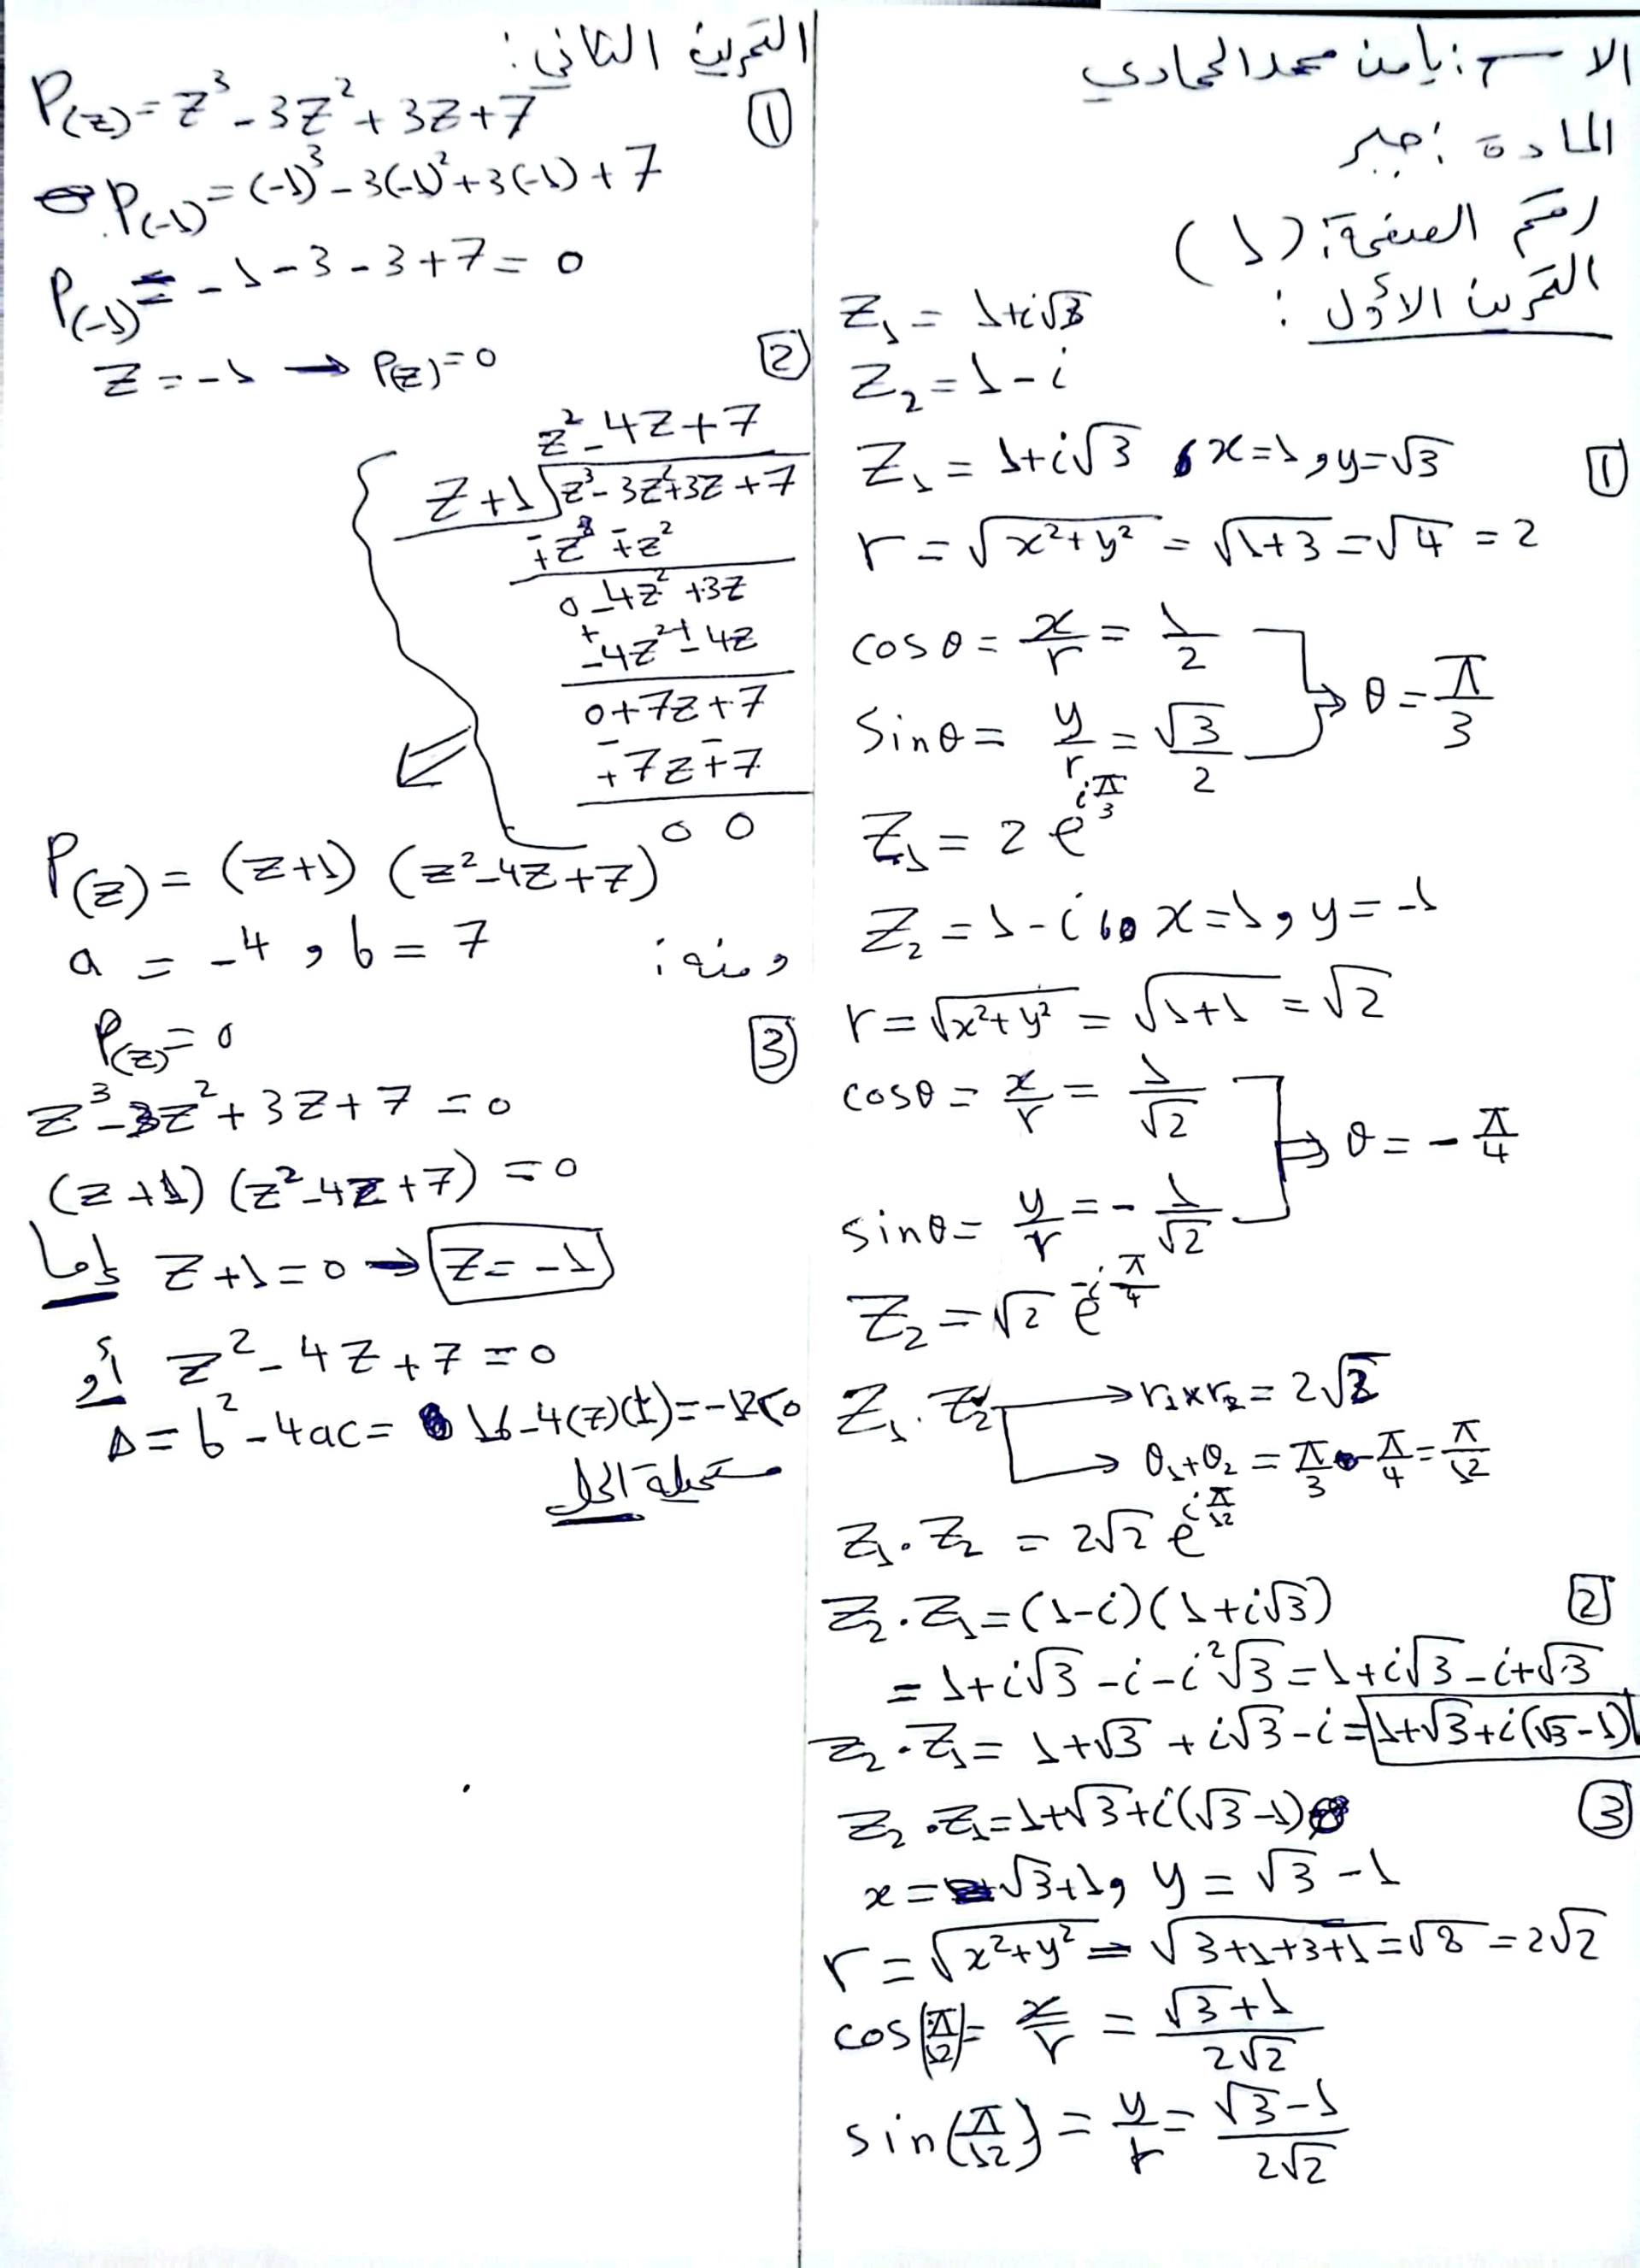 الاسم: يامن محمد الحمادي
المادة: جبر
رقم الصفحة: (1)
التمرين الأول:
Z₁ = 1+i√3
Z₂ = 1-i
① Z₁ = 1+i√3 , x=1, y=√3
r = √(x²+y²) = √(1+3) = √4 = 2
cosθ = x/r = 1/2
sinθ = y/r = √3/2 → θ = π/3
Z₁ = 2 e^(iπ/3)
Z₂ = 1-i , x=1, y=-1
r = √(x²+y²) = √(1+1) = √2
cosθ = x/r = 1/√2
sinθ = y/r = -1/√2 ⇒ θ = -π/4
Z₂ = √2 e^(-iπ/4)
Z₁.Z₂ → r₁×r₂ = 2√2
→ θ₁+θ₂ = π/3 - π/4 = π/12
Z₁.Z₂ = 2√2 e^(iπ/12)
② Z₂.Z₁ = (1-i)(1+i√3)
= 1+i√3-i-i²√3 = 1+i√3-i+√3
Z₂.Z₁ = 1+√3+i√3-i = 1+√3+i(√3-1)
③ Z₂.Z₁ = 1+√3+i(√3-1)
x = √3+1, y = √3-1
r = √(x²+y²) = √(3+1+3+1) = √8 = 2√2
cos(π/12) = x/r = (√3+1)/(2√2)
sin(π/12) = y/r = (√3-1)/(2√2)
التمرين الثاني:
① P(z) = z³-3z²+3z+7
P(-1) = (-1)³-3(-1)²+3(-1)+7
P(-1) = -1-3-3+7 = 0
② z = -1 → P(z) = 0
z²-4z+7
z+1 √ z³-3z²+3z+7
∓z³ ∓z²
0-4z²+3z
±4z² ±4z
0+7z+7
∓7z∓7
0 0
P(z) = (z+1)(z²-4z+7)
ومنه: a = -4, b = 7
③ P(z) = 0
z³-3z²+3z+7 = 0
(z+1)(z²-4z+7) = 0
إما z+1=0 → z=-1
أو z²-4z+7 = 0
Δ = b²-4ac = 16-4(7)(1) = -12<0
مستحيلة الحل